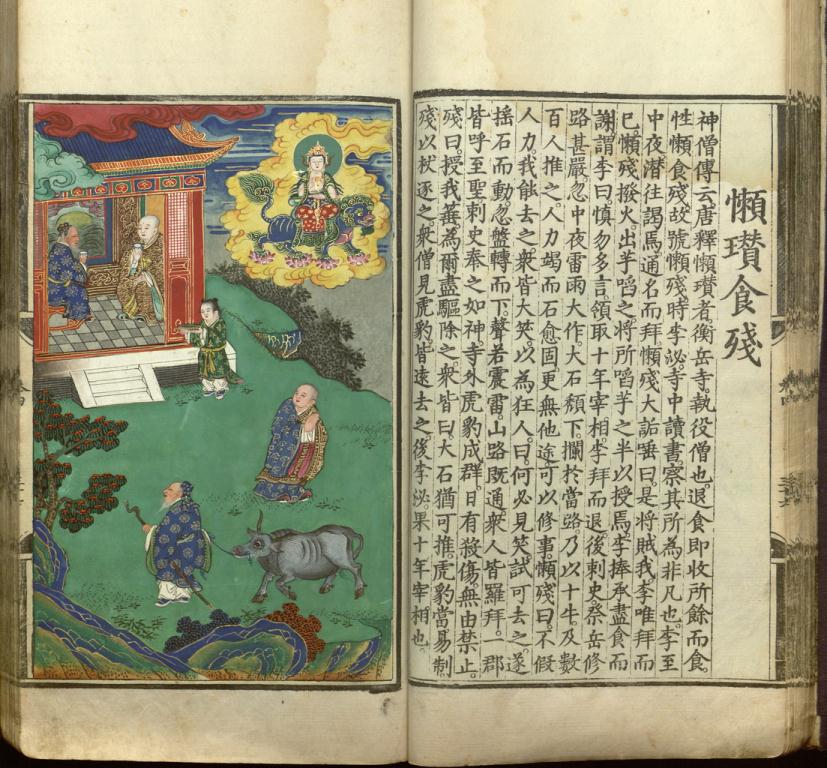 懶瓚食殘
神僧傳云唐釋懶瓚者衡岳寺執役僧也。退食即收所餘而食。
性懶食殘。故號懶殘。時李泌寺中讀書。察其所為非凡也。李至
中夜潛往謁焉。通名而拜。懶殘大詬唾曰。是將賊我。李唯拜而
已。懶殘撥火。出芋啗之。將所啗芋之半以授焉。李捧承盡食而
謝。謂李曰。慎勿多言。領取十年宰相。李拜而退。後刺史祭岳修
路甚嚴。忽中夜雷雨大作。大石頹下。攔於當路。乃以十牛。及數
百人推之。人力竭而石愈固。更無他途可以修事。懶殘曰。不假
人力。我能去之。衆皆大笑。以為狂人。曰。何必見笑。試可去之。遂
搖石而動。忽盤轉而下。聲若震雷。山路既通。衆人皆羅拜。一郡
皆呼至聖。刺史奉之如神。寺外虎豹成群。日有殺傷。無由禁止。
殘曰。授我箠。為爾盡驅除之。衆皆曰。大石猶可推。虎豹當易制
殘以杖逐之。衆僧見虎豹皆遠去之。後李泌。果十年宰相也。